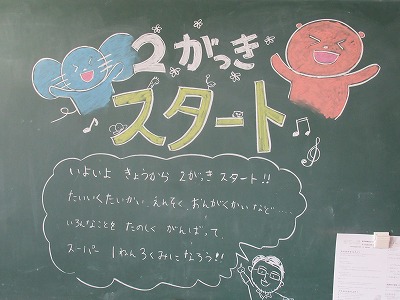 2がっき
スタート
いよいよ きょうから 2がっき スタート!!
たいいくたいかい、えんそく、おんがくかいなど……
いろんなことを たのしく がんばって、
スーパー 1ねん3くみになろう!!